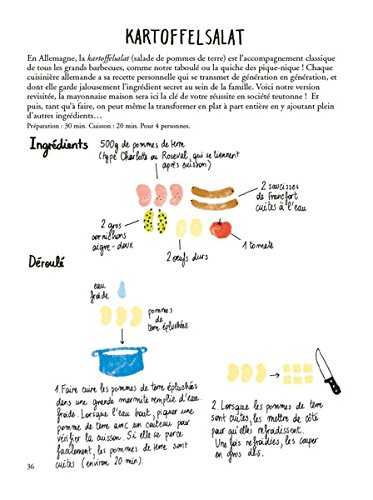 KARTOFFELSALAT
En Allemagne, la kartoffelsalat (salade de pommes de terre) est l'accompagnement classique
de tous les grands barbecues, comme notre taboulé ou la quiche des pique-nique ! Chaque
cuisinière allemande a sa recette personnelle qui se transmet de génération en génération, et
dont elle garde jalousement l'ingrédient secret au sein de la famille. Voici notre version
revisitée, la mayonnaise maison sera ici la clef de votre réussite en société teutonne ! Et
puis, tant qu'à faire, on peut même la transformer en plat à part entière en y ajoutant plein
d'autres ingrédients…
Préparation : 30 min. Cuisson : 20 min. Pour 4 personnes.
Ingrédients
500g de pommes de terre
(type Charlotte ou Roseval, qui se tiennent
après cuisson)
2 saucisses
de Francfort
cuites à l'eau
2 gros
cornichons
aigre-doux
2 œufs durs
1 tomate
Déroulé
eau
froide
pommes
de
terre épluchées
1. Faire cuire les pommes de terre épluchées
dans une grande marmite remplie d'eau
froide. Lorsque l'eau bout, piquer une
pomme de terre avec un couteau pour
vérifier la cuisson. Si elle se perce
facilement, les pommes de terre sont
cuites (environ 20 min).
2. Lorsque les pommes de terre
sont cuites, les mettre de côté
pour qu'elles refroidissent.
Une fois refroidies, les couper
en gros dés.
36